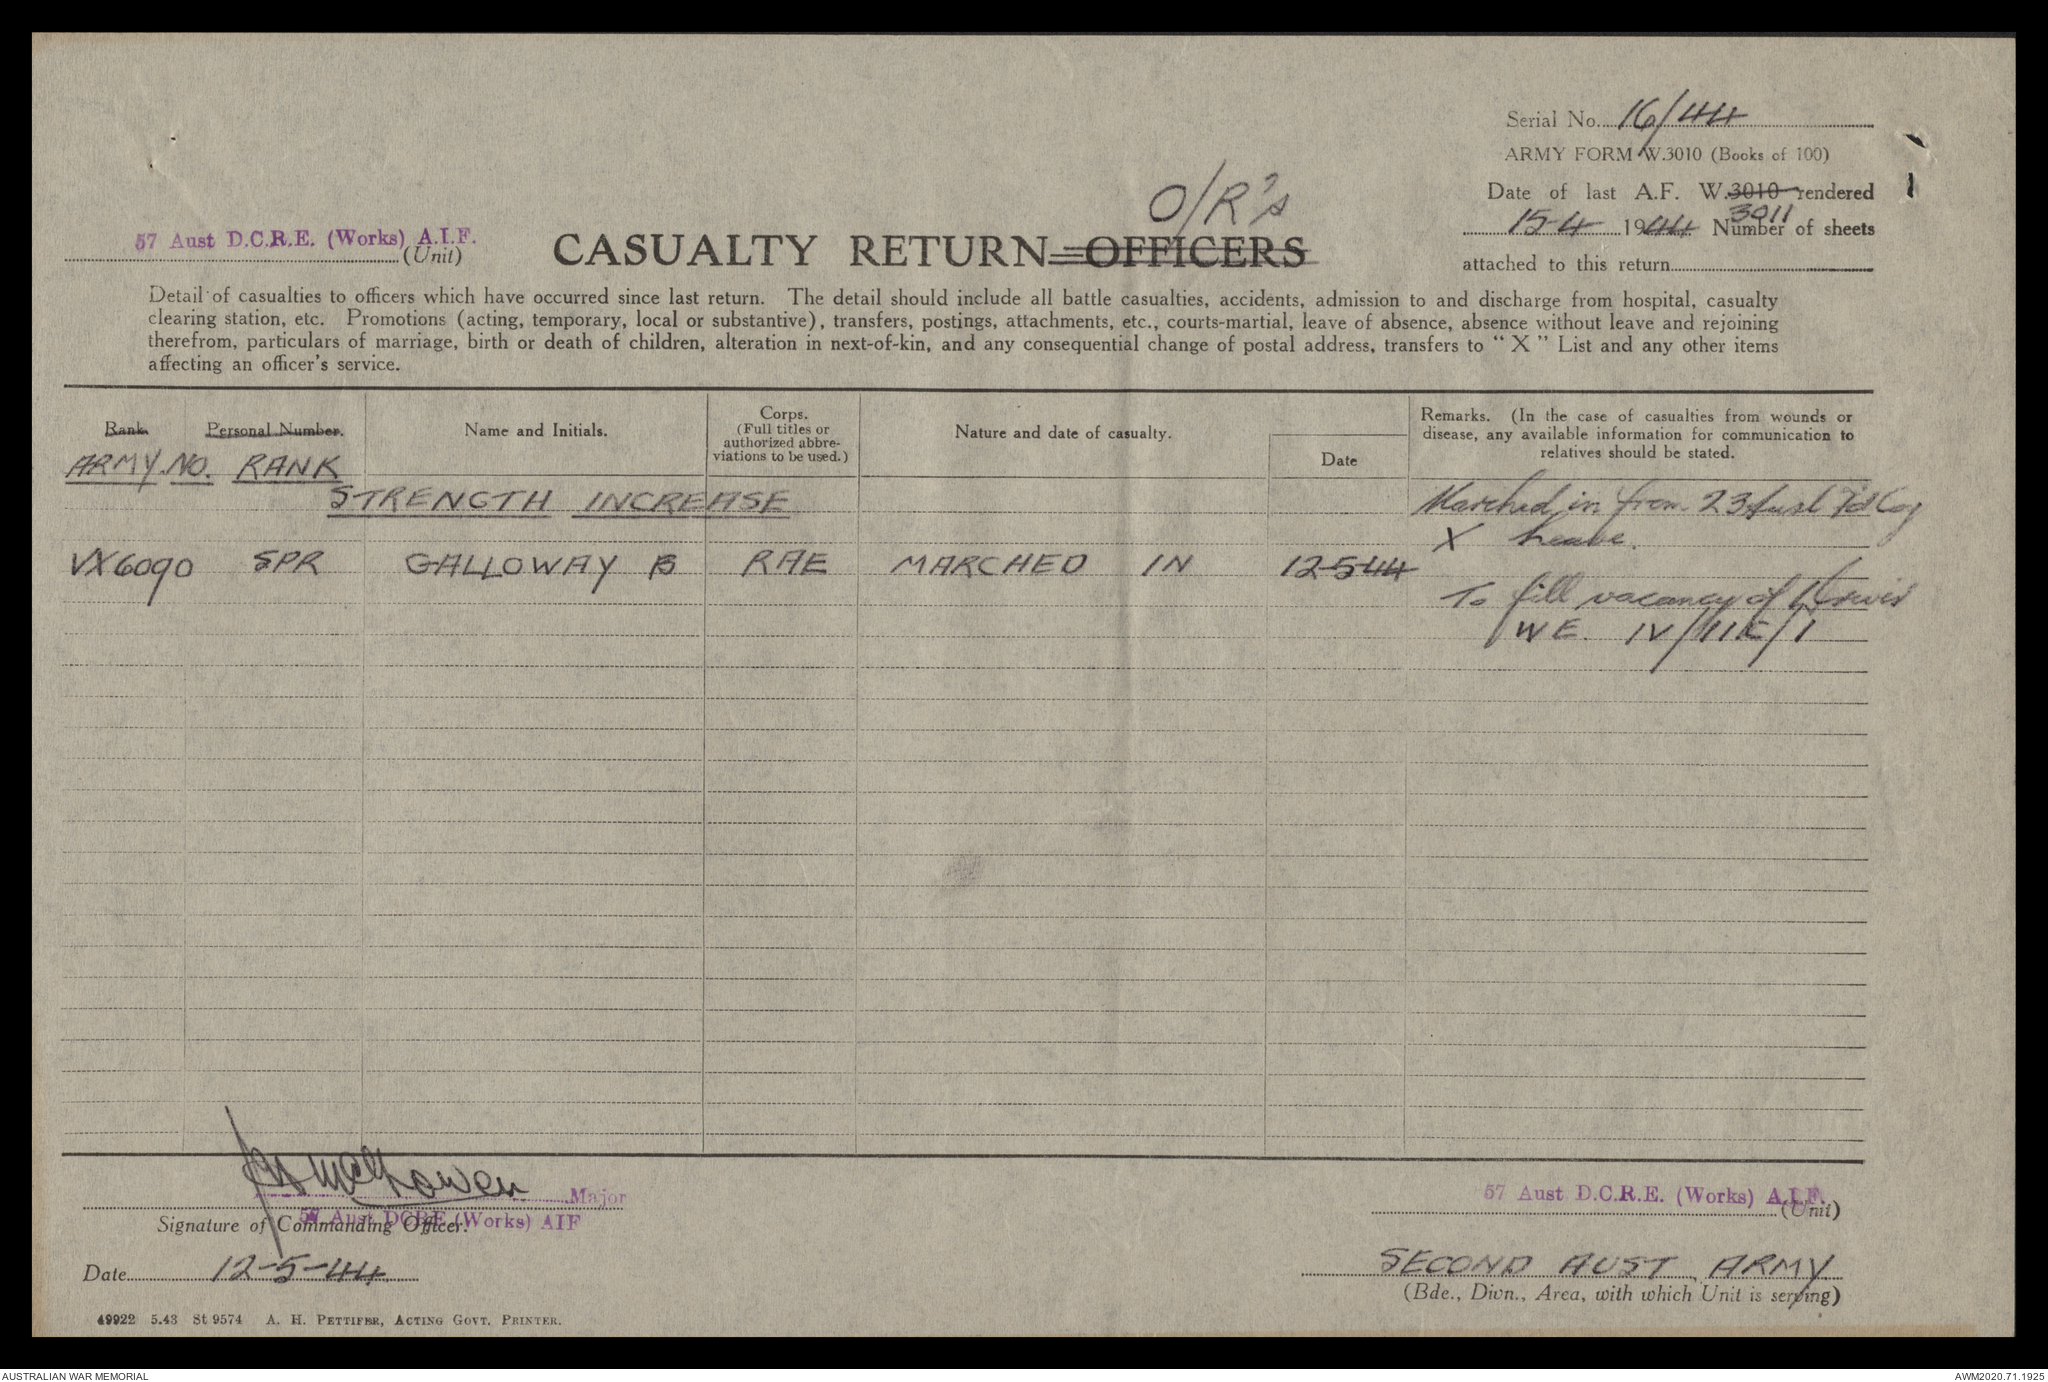 Serial No. 16/44
ARMY FORM W.3010 (Books of 100)
Date of last A.F. W.3010 rendered
3011
15-4 1944 Number of sheets
attached to this return
O/R's
57 Aust D.C.R.E. (Works) A.I.F.
(Unit)
CASUALTY RETURN=OFFICERS
Detail of casualties to officers which have occurred since last return. The detail should include all battle casualties, accidents, admission to and discharge from hospital, casualty
clearing station, etc. Promotions (acting, temporary, local or substantive), transfers, postings, attachments, etc., courts-martial, leave of absence, absence without leave and rejoining
therefrom, particulars of marriage, birth or death of children, alteration in next-of-kin, and any consequential change of postal address, transfers to “ X ” List and any other items
affecting an officer's service.
Rank. Personal Number. Name and Initials. Corps. (Full titles or authorized abbreviations to be used.) Nature and date of casualty. Date Remarks. (In the case of casualties from wounds or
disease, any available information for communication to
relatives should be stated.
ARMY. NO. RANK
STRENGTH INCREASE
Marched in from 23 Aust Fd Coy
X
VX6090 SPR GALLOWAY B RAE MARCHED IN 12-5-44
To fill vacancy of
WE. IV/11E/1
McGowen Major
57 Aust DCRE (Works) AIF
Signature of Commanding Officer.
Date 12-5-44
57 Aust D.C.R.E. (Works) A.I.F.
(Unit)
SECOND AUST ARMY
(Bde., Divn., Area, with which Unit is serving)
49922 5.43 St 9574 A. H. PETTIFER, ACTING GOVT. PRINTER.
AUSTRALIAN WAR MEMORIAL
AWM2020.71.1925